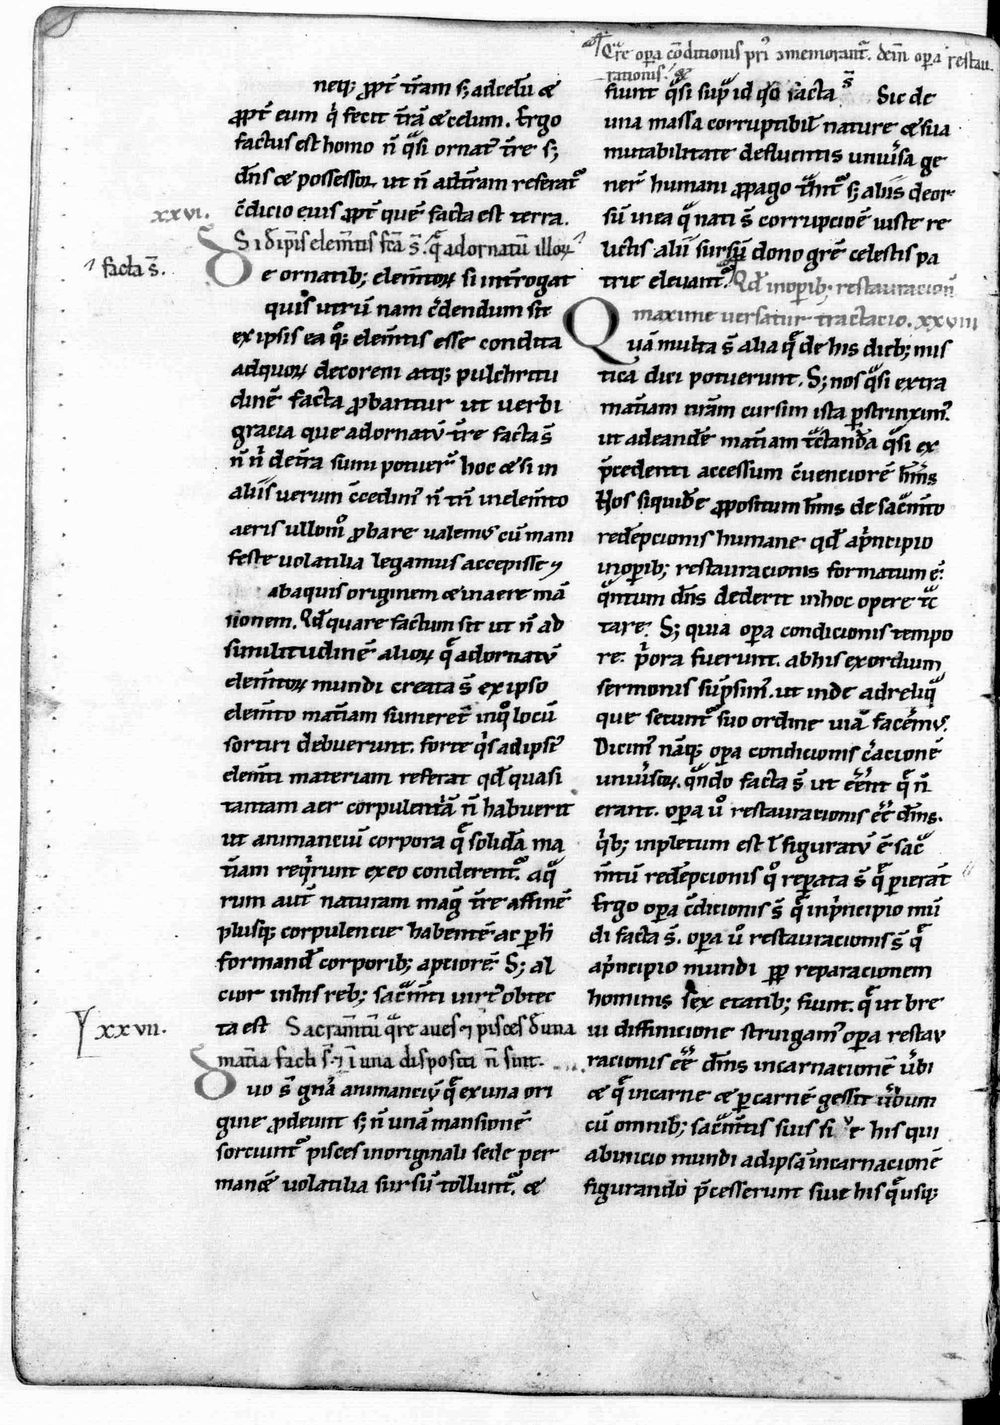 Cᷓre opa ↄ̄ditionis pri ↄmemorant᷑. dein̄ opa restau
rationis.
neq; ꝓpt̄ tr̄am s; ad celū ⁊
ꝓpt̄ eum q̇ fecit tr̄ā ⁊ celum. Ergo
factus est homo n̄ qᷓsi ornat᷑ tr̄e s;
dn̄s ⁊ possessor. ut n̄ ad tr̄am referat᷑
c̄dicio eius ꝓpt̄ quē facta est terra.
xxvi.
Si d ip̄is elem̄tis fcā s̄ q̄ ad ornatū illoꝝ
facta s̄.
De ornatib; elem̄toꝝ si int̄rogat
quis utrū nam c̄dendum sit
ex ipsis ea q̊; elem̄tis esse condita
ad quoꝝ decorem atq; pulchritu
dinē facta ꝓbantur ut uerbi
gracia que ad ornatū tr̄e facta s̄
n̄ n̄ de tr̄a sumi potuer̄ hoc ⁊ si in
aliis uerum c̄cedim᷑ n̄ tn̄ in elem̄to
aeris ullom̊ ꝓbare ualem᷑ cū mani
feste uolatilia legamus accepisse
ab aquis originem ⁊ in aere mā
sionem. Qd̄ quare factum sit ut n̄ ad
similitudinē alioꝝ q̄ ad ornatū
elem̄toꝝ mundi creata s̄ ex ipso
elem̄to mat̄iam sumerēt in q̊ locū
sortiri debuerunt. forte q̇s ad ipsi᷑
elem̄ti materiam referat qd̄ quasi
tantam aer corpulentiā n̄ habuerit
ut animanciū corpora q̄ solidā ma
t̄iam req̇runt ex eo conderent᷑. aqᷓ
rum aut̄ naturam mag̊ tr̄e affinē
plusq; corpulencie habentē ac ꝑ h̄
formand̄ corporib; aptiorē. S; al
cior in his reb; sac̄m̄ti uirt᷑ obtec
ta est Sacram̄tū qᷓre aues ⁊ pisces d̄ una
xxvii.
mat̄ia facti s̄. ⁊ ī una disposici n̄ sint.
Duo s̄ gn̄a animanciū q̄ ex una ori
gine ꝓdeunt s; n̄ unā mansionē
sorciunt᷑ pisces in originali sede per
manēt uolatilia sursū tollunt᷑. ⁊
fiunt qᷓsi sup̄ id qd̄ facta s̄ Sic de
una massa corruptibil̄ nature ⁊ sua
mutabilitate defluentis uniūsa ge
ner̄ humani ꝓpago s; aliis deor
sū in ea q̄ nati s̄ corrupcioē iuste re
lictis alii sursū dono gr̄e celestis pa
trie eleuant᷑. Qd̄ in oꝑib; restauracion̄
maxime uersatur tractacio. xxviii
Quā multa s̄ alia q̄ de his dieb; mis
tica dici potuerunt. S; nos qᷓsi extra
mat̄iam nr̄am cursim ista ꝑstrinxim᷑.
ut ad eandē mat̄iam tᷓctandā qᷓsi ex
p̄cedenti accessum c̄uenciorē hm̄s
Nos siquidē ꝓpositum hm̄s de sac̄m̄to
redēpcionis humane qd̄ a p̄ncipio
in oꝑib; restauracionis formatum ē.
qᷓntum dn̄s dederit in hoc opere tᷓc
tare. S; quia oꝑa condicionis tempo
re p̄ora fuerunt. ab his exordium
sermonis sūpsim᷑. ut inde ad reliqᷓ
que secunt᷑ suo ordine uiā facem᷑.
Dicim᷑ nāq; oꝑa condicionis c̄acionē
uniūsoꝝ. qᷓndo facta s̄ ut eēnt q̄ n̄
erant. oꝑa ů restauracionis eē dm̄s.
q̇b; inpletum est l̄ figuratū ē sacᷓ
m̄tū redēpcionis q̊ reꝑata s̄ q̄ ꝑierāt
Ergo oꝑa c̄dicionis s̄ q̄ in p̄ncipio mū
di facta s̄. oꝑa ů restauracionis s̄ q̄
a p̄ncipio mundi ꝓꝑ reparacionem
hominis sex etatib; fiunt. q̄ ut bre
ui diffinicione stringam᷑ oꝑa restau
racionis eē dm̄s incarnacionē ūbi
⁊ q̄ in carne ⁊ ꝑ carnē gessit ūbum
cū omnib; sac̄m̄tis suis siue his qui
ab inicio mundi ad ipsā incarnacionē
figurando p̄cesserunt siue his q̄ usq;